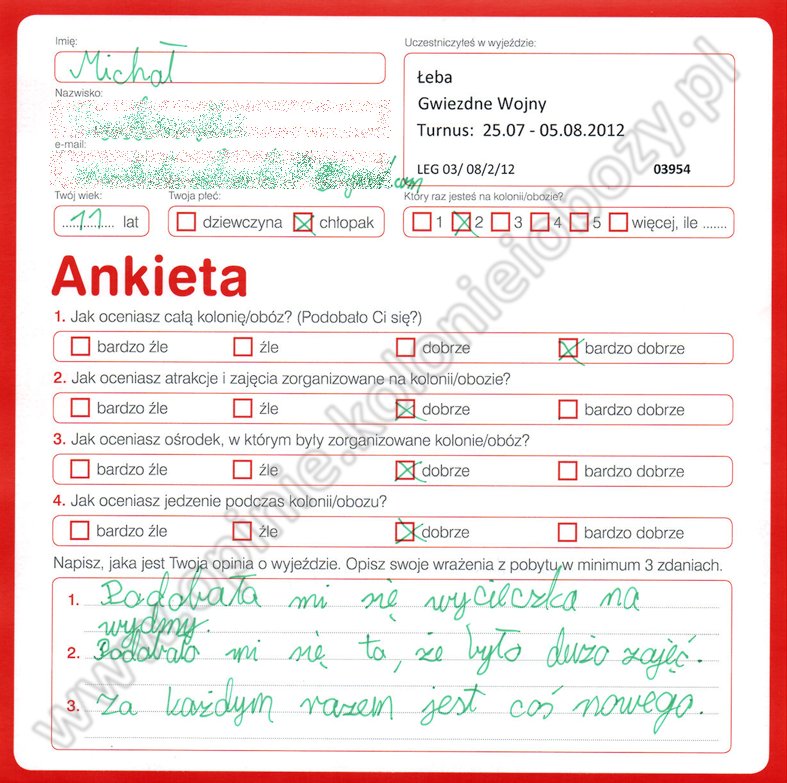 Imię:
Michał
Uczestniczyłeś w wyjeździe:
Łeba
Gwiezdne Wojny
Turnus: 25.07 - 05.08.2012
LEG 03/ 08/2/12 03954
Nazwisko:
e-mail:
@gmail.com
Twój wiek: Twoja płeć: Który raz jesteś na kolonii/obozie?
11 lat dziewczyna chłopak 1 2 3 4 5 więcej, ile .......
Ankieta
1. Jak oceniasz całą kolonię/obóz? (Podobało Ci się?)
bardzo źle źle dobrze bardzo dobrze
2. Jak oceniasz atrakcje i zajęcia zorganizowane na kolonii/obozie?
bardzo źle źle dobrze bardzo dobrze
3. Jak oceniasz ośrodek, w którym były zorganizowane kolonie/obóz?
bardzo źle źle dobrze bardzo dobrze
4. Jak oceniasz jedzenie podczas kolonii/obozu?
bardzo źle źle dobrze bardzo dobrze
Napisz, jaka jest Twoja opinia o wyjeździe. Opisz swoje wrażenia z pobytu w minimum 3 zdaniach.
1. Podobała mi się wycieczka na
wydmy.
2. Podobało mi się to, że było dużo zajęć.
3. Za każdym razem jest coś nowego.
www.opinie.kolonieiobozy.pl